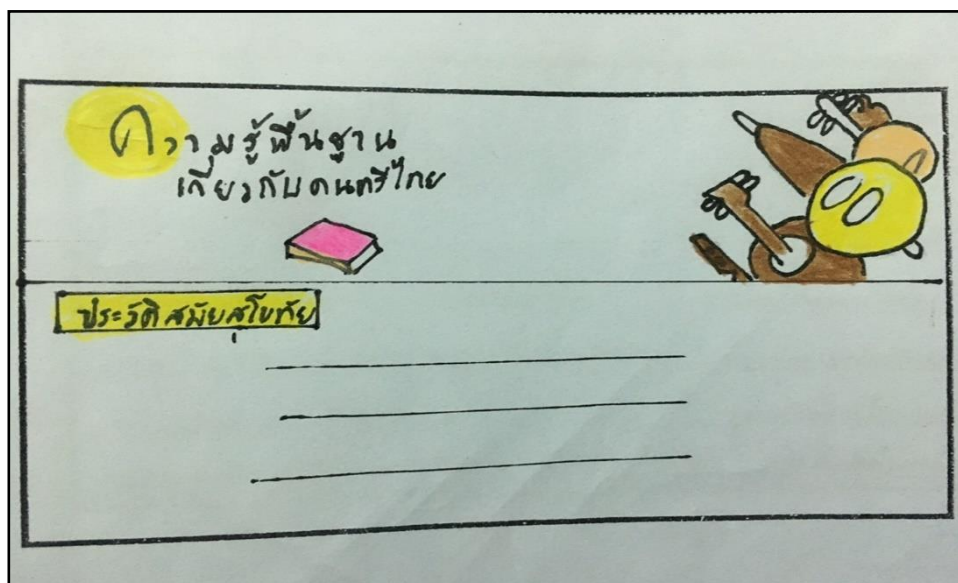 ความรู้พื้นฐาน
เกี่ยวกับดนตรีไทย
ประวัติสมัยสุโขทัย